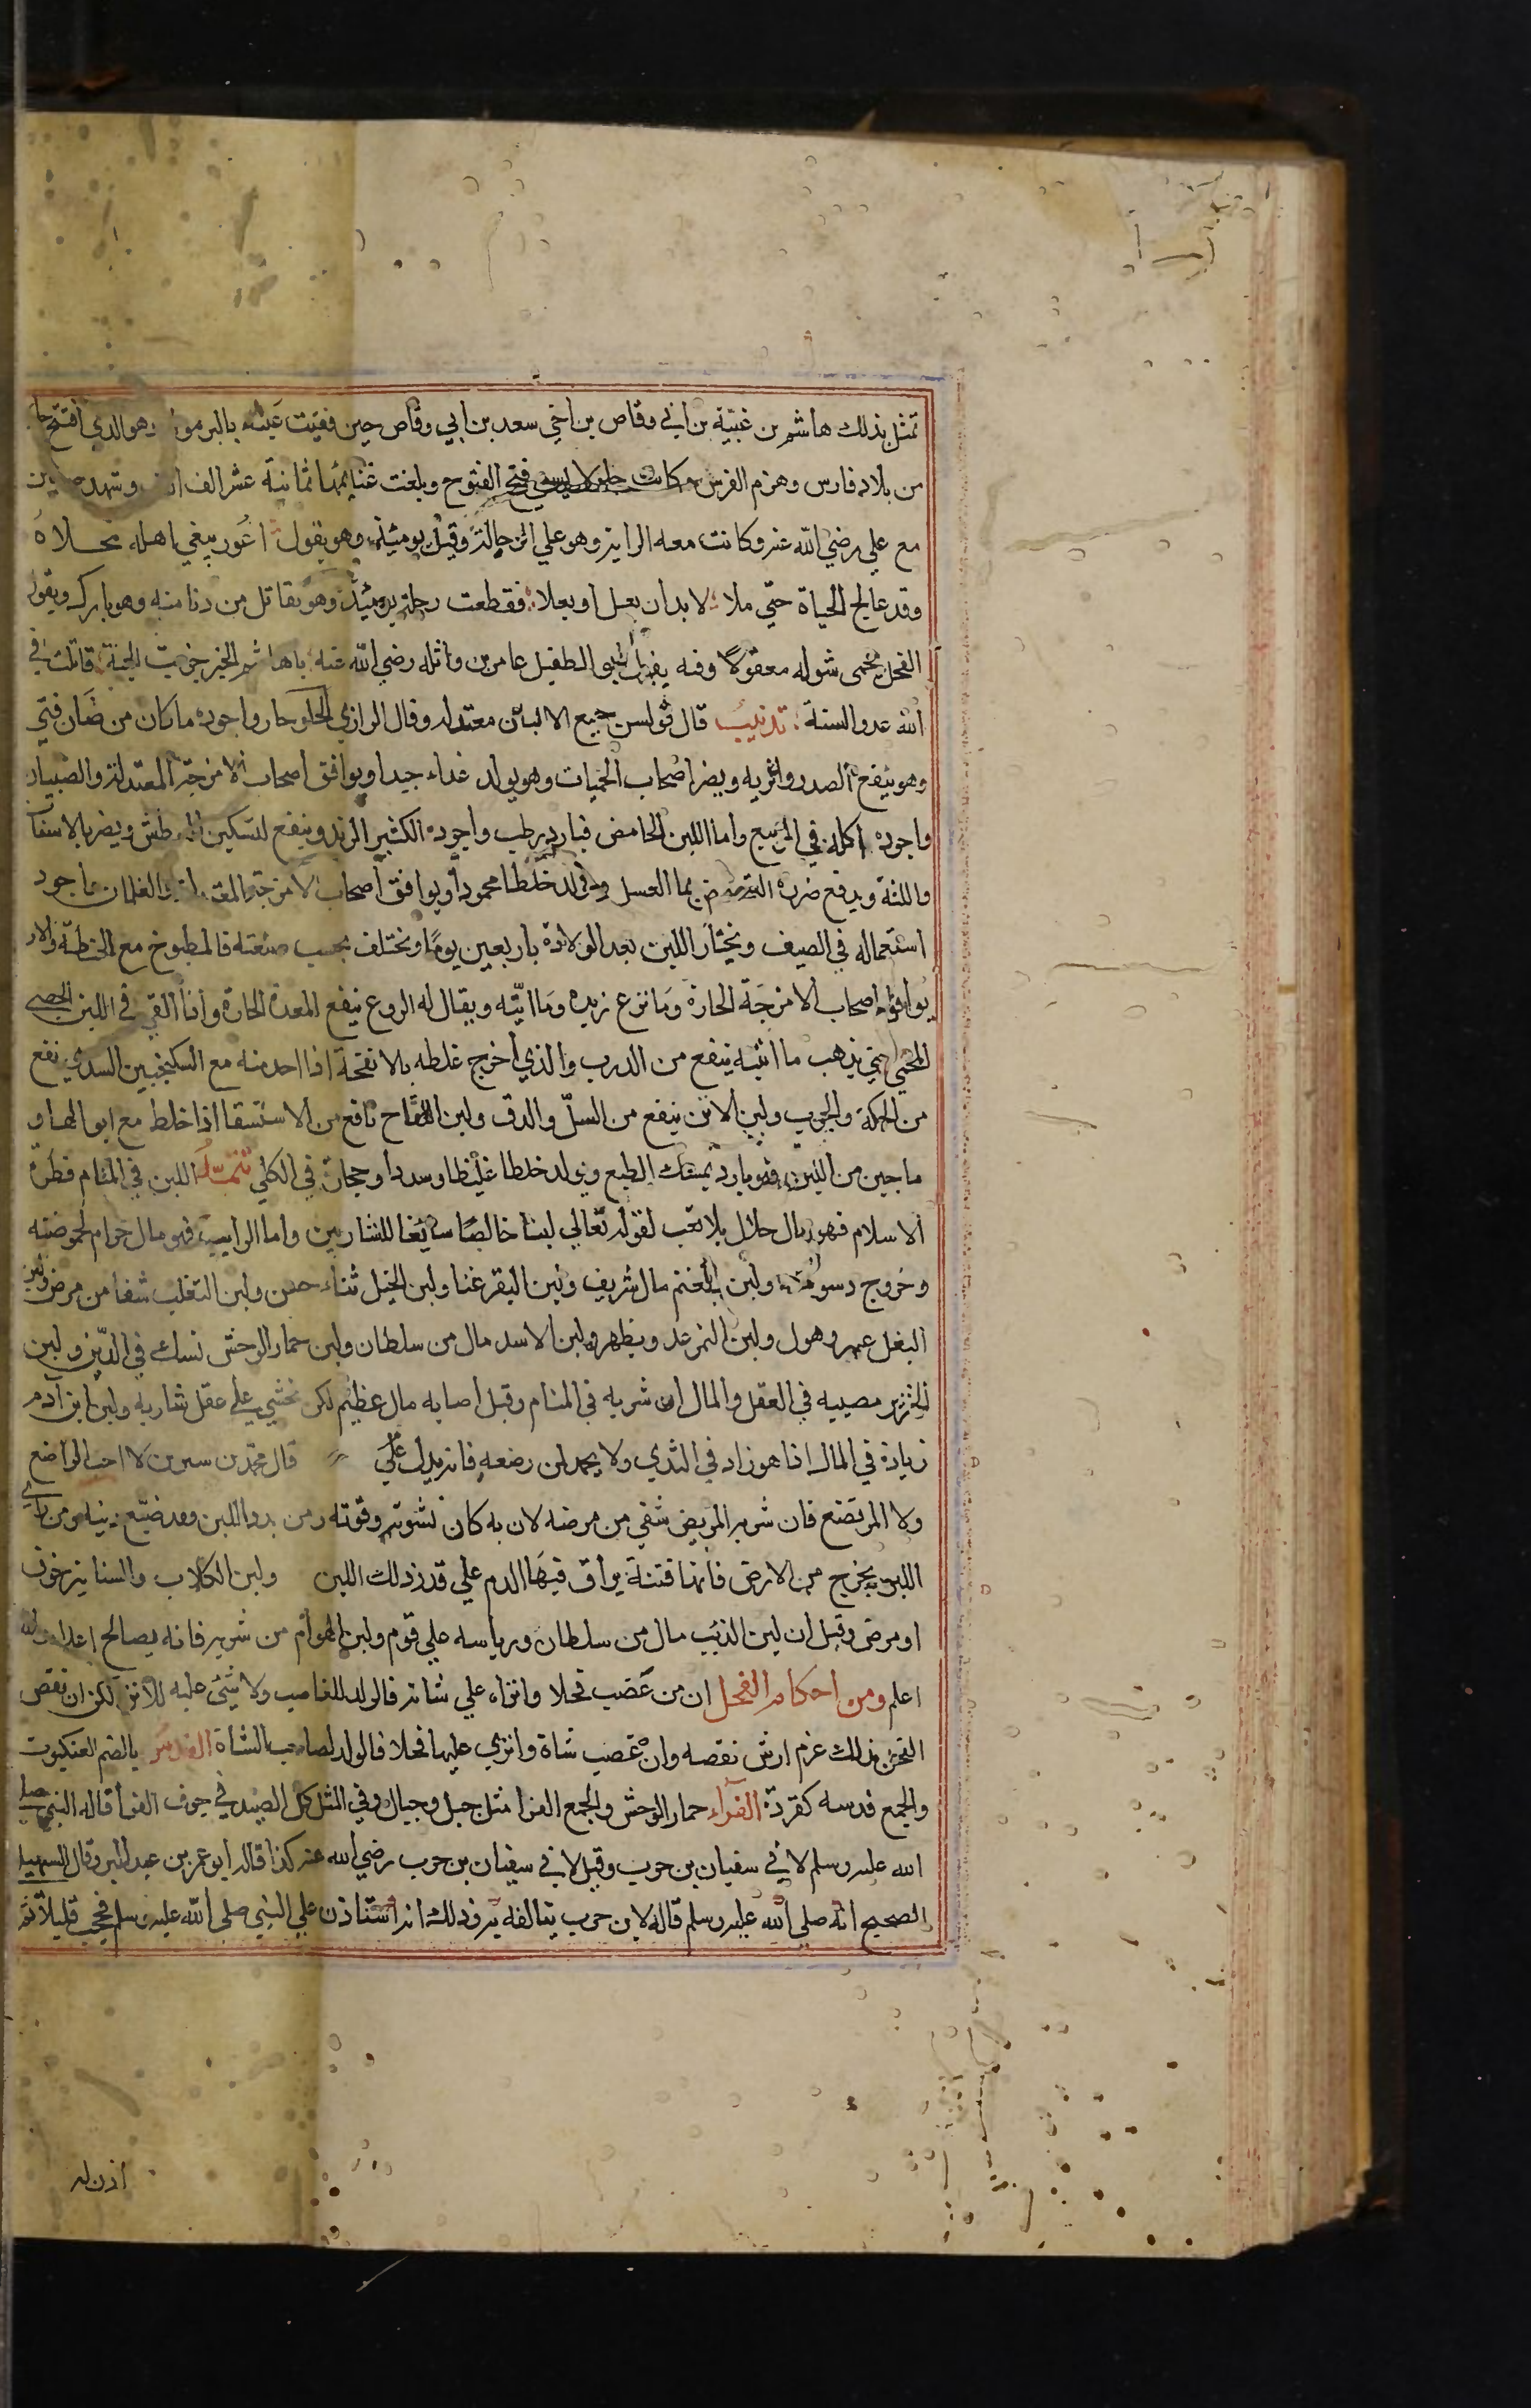 تمثل بذلك هاشم بن عتبة بن ابي وقاص بن اخي سعد بن ابي وقاص حين فقيت عينه باليرموك وهو الذي افتتح جا
من بلاد فارس وهزم الفرس وكانت جلولا يسمي فتح الفتوح وبلغت غنايمها ثمانية عشر الف الف وشهد صفين
مع علي رضي الله عنه وكانت معه الراية وهو علي الرجالة وقيل يومئذ وهو يقول اعور يبغي اهله محلاه
وقد عالج الحياة حتي ملا لا بد ان يعل او يعلا فقطعت رجله يومئذ وهو يقاتل من دنا منه وهو بارك ويقول
الفحل يحمي شوله معقولا وفيه يقول ابو الطفيل عامر بن واثله رضي الله عنه ياهاشم الخير جزيت الجنة قاتلت في
الله عدو السنة تذنيب قال قولس جميع الالبان معتدله وقال الرازي الحلو حار واجوده ما كان من ضان فتي
وهو ينفع الصدر والريه ويضر اصحاب الحميات وهو يولد غداء جيدا ويوافق اصحاب الامزجة المعتدلة والصبيان
واجوده اكله في الربيع واما اللبن الحامض فبارد رطب واجوده الكثير الزبد وينفع لتسكين العطش ويضر بالاسنا
واللثة ويدفع ضرره التمضمض بما العسل ويولد خلطا محمودا ويوافق اصحاب الامزجة المعتدلة والغلمان واجود
استعماله في الصيف ويختار اللبن بعد الولادة باربعين يوما ويختلف بحسب صنعته فالمطبوخ مع الحنطة والارز
يوافق اصحاب الامزجة الحارة وما نزع زبده وماايته ويقال له الروع ينفع المعدة الحارة واذا القي في اللبن الحصي
المحمي حتي يذهب ماائيته ينفع من الدرب والذي اخرج غلطه بالانفحة اذا اخد منه مع السكنجبين السدري نفع
من الحكة والجرب ولبن الاتن ينفع من السل والدق ولبن اللقاح نافع من الاستسقا اذا خلط مع ابوالها و
ما جبن من اللبن فهو بارد يمسك الطبع ويولد خلطا غليظا وسددا وحجارة في الكلي تتمة اللبن في المنام فطرة
الاسلام فهو مال حلال بلا تعب لقوله تعالي لبنا خالصا سائغا للشاربين واما الرايب فهو مال حرام لحموضته
وخروج دسومته ولبن الغنم مال شريف ولبن البقر غنا ولبن الخيل ثناء حسن ولبن الثعلب شفا من مرض ولبن
البغل عسر وهول ولبن النمر عدو يظهر ولبن الاسد مال من سلطان ولبن حمار الوحش نسك في الدين ولبن
الخنزير مصيبه في العقل والمال ان شربه في المنام وقيل اصابه مال عظيم لكن نخشي علي عقل شاربه ولبن ابن آدم
زيادة في المال اذا هو زاد في الثدي ولا يحمد لمن رضعه فانه يدل علي قال محمد بن سيرين لا احب الراضع
ولا المرتضع فان شربه المريض شفي من مرضه لان به كان نشوته وقوته ومن بدد اللبن فقد ضيع دينه ومن راي
اللبن يخرج من الارض فانها فتنة يراق فيها الدم علي قدر ذلك اللبن ولبن الكلاب والسنانير خوف
او مرض وقيل ان لبن الذئب مال من سلطان ورياسه علي قوم ولبن الهوام من شربه فانه يصالح اعداه والله
اعلم ومن احكام الفحل ان من غصب فحلا وانزاه علي شاته فالولد للغاصب ولا شيئ عليه للانزا لكن ان نقص
الفحل بذلك غرم ارش نقصه وان غصب شاة وانزي عليها فحلا فالولد لصاحب الشاة الفدس بالضم العنكبوت
والجمع فدسه كقردة الفرآء حمار الوحش والجمع الفرا مثل جبل وجبال وفي المثل كل الصيد في جوف الفرأ قاله النبي صلي
الله عليه وسلم لابي سفيان بن حرب وقيل لابي سفيان بن حرب رضي الله عنه كذا قاله ابو عمر بن عبد البر وقال السهيلي
الصحيح انه صلي الله عليه وسلم قاله لابن حرب يتالفه به وذلك انه استاذن علي النبي صلي الله عليه وسلم فحجب قليلا ثم
اذن له